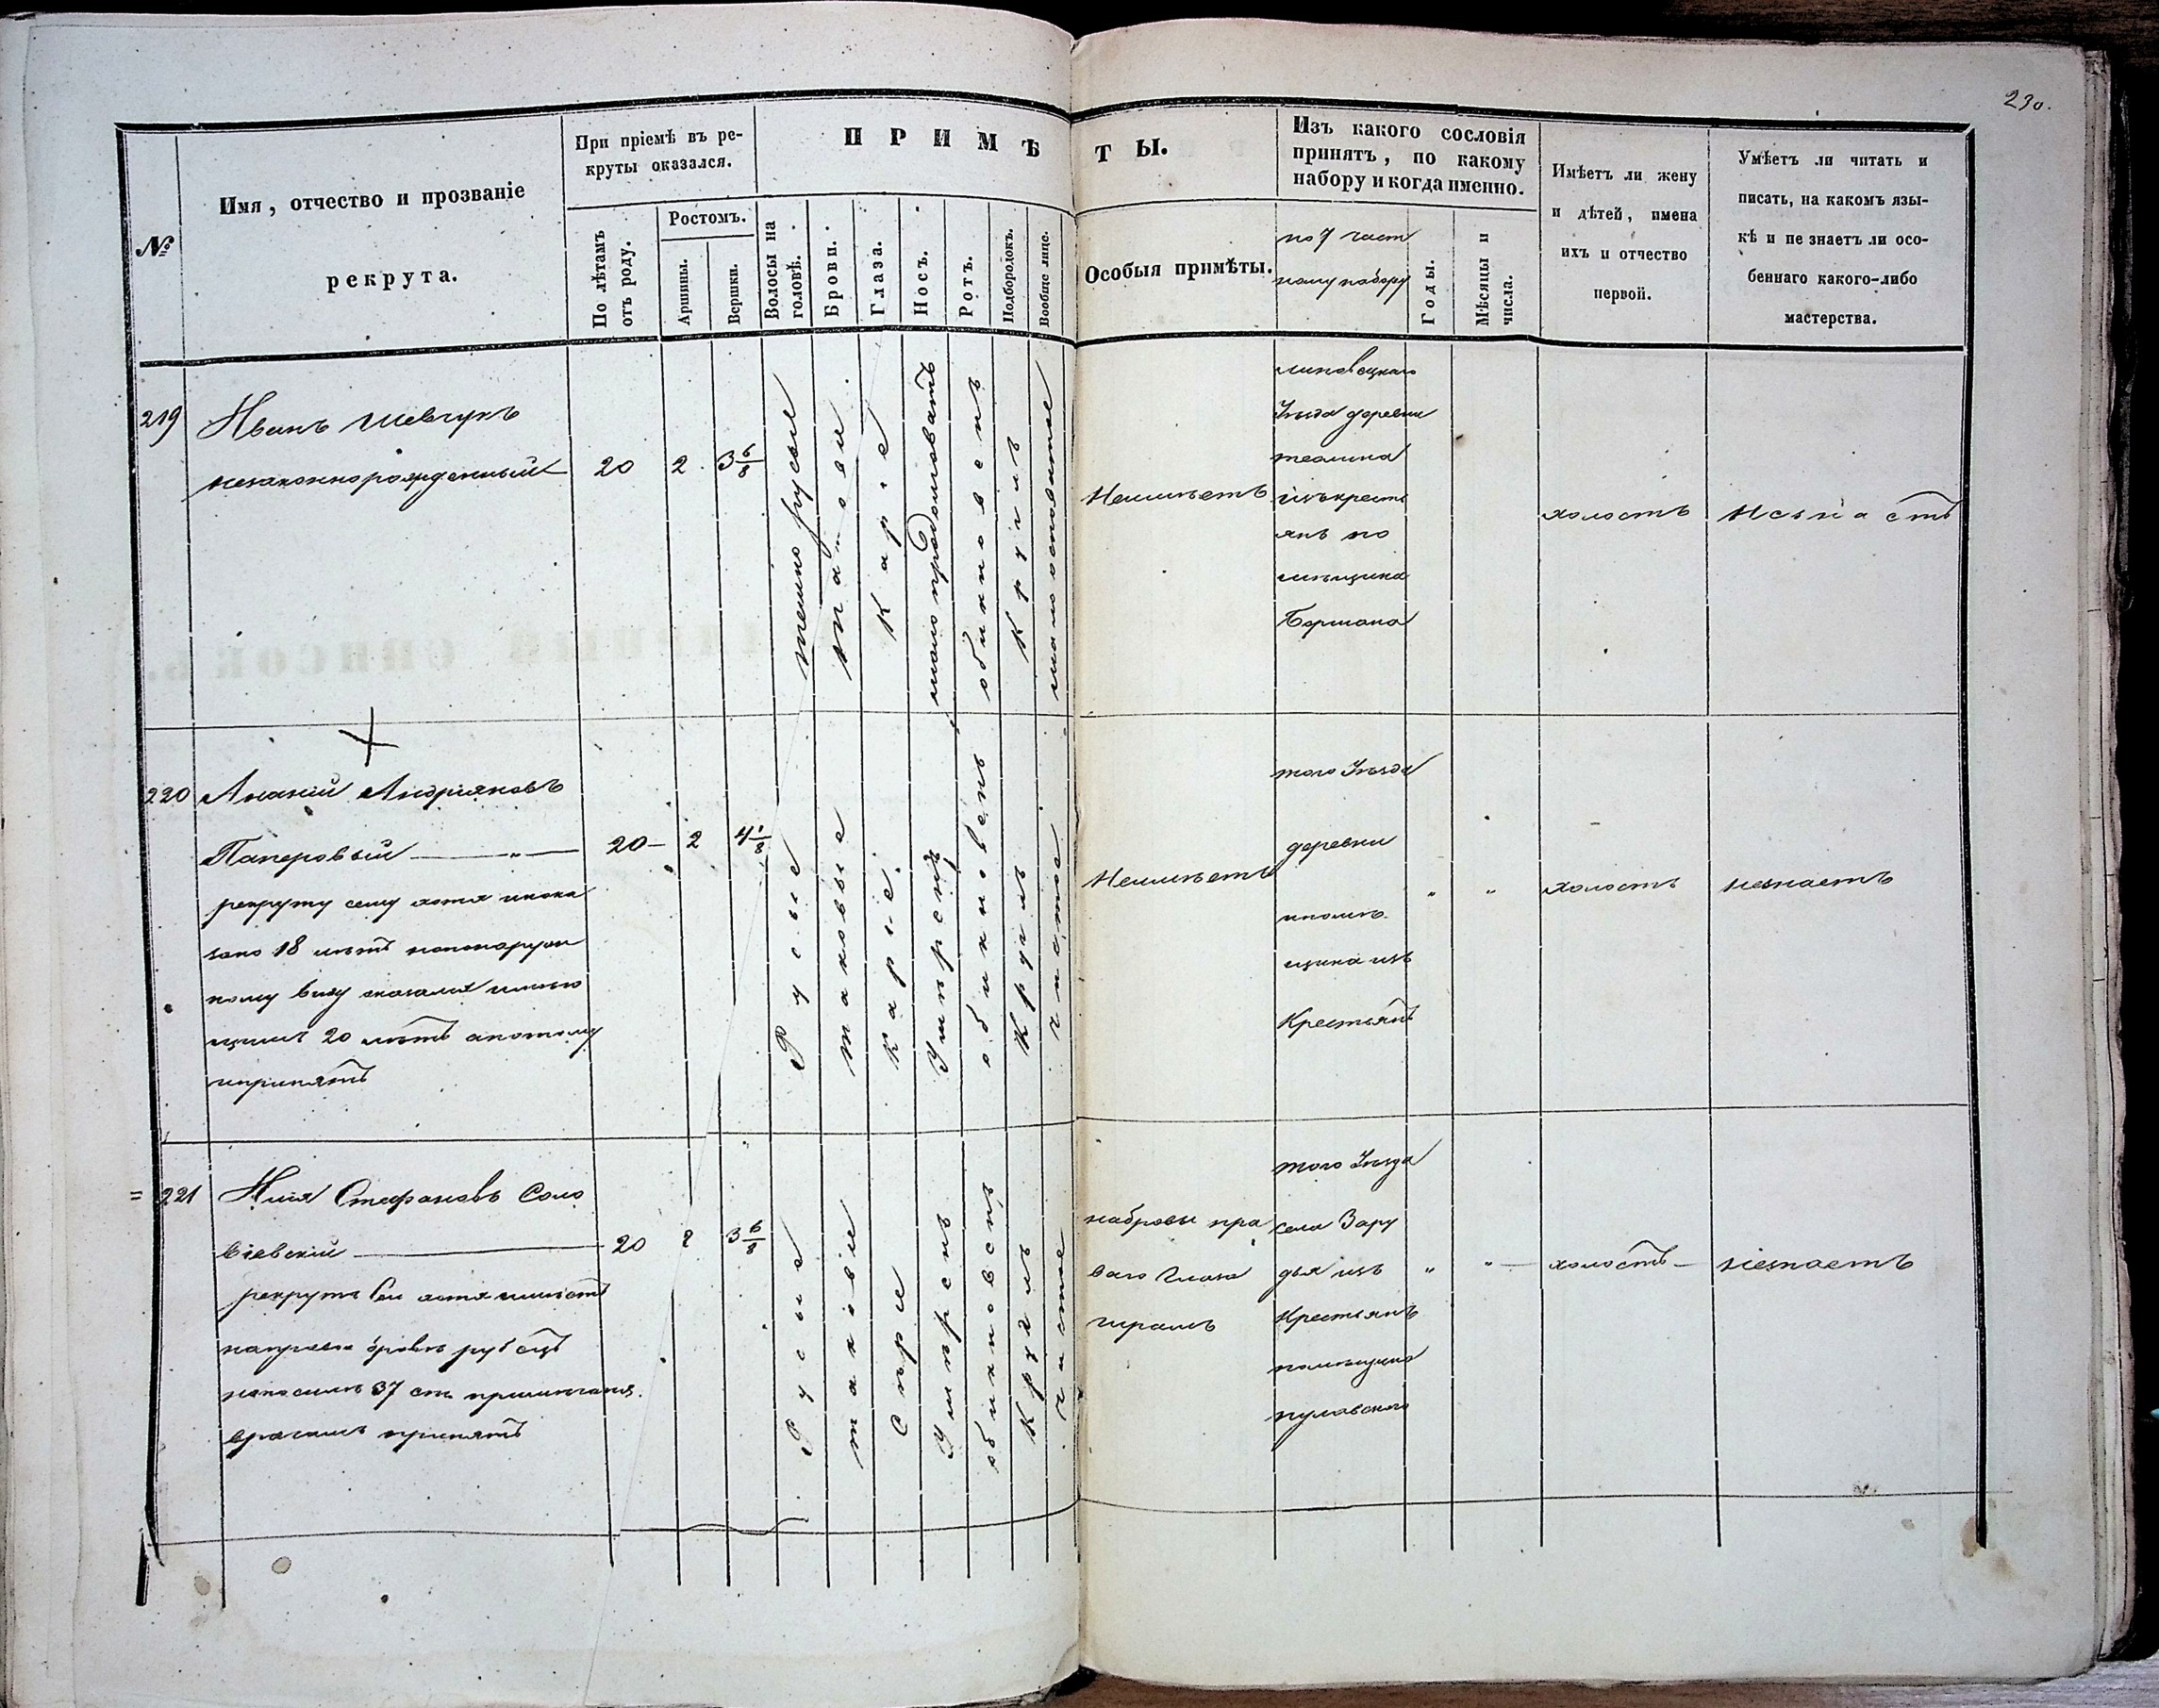 230.
№
Имя, отчество и прозваніе
рекрута.
При пріемѣ въ ре-
круты оказался.
По лѣтамъ
отъ роду.
Ростомъ.
Аршины.
Вершки.
ПРИМѢТЫ.
Волосы на
головѣ.
Брови.
Глаза.
Носъ.
Ротъ.
Подбородокъ.
Вообще лице.
Особыя примѣты.
Изъ какого сословія
принятъ, по какому
набору и когда именно.
по 7 част
ному набору
Годы.
Мѣсяцы и
числа.
Имѣетъ ли жену
и дѣтей, имена
ихъ и отчество
первой.
Умѣетъ ли читать и
писать, на какомъ язы-
кѣ и не знаетъ ли осо-
беннаго какого-либо
мастерства.
219
Иванъ Шевчукъ
незаконнорожденный
20
2
3 6/8
темно русые
таковіи
Каріе
мало продолговатъ
обикновенъ
Кругил
малоосповатое
Неимѣетъ
липовецкаго
Уѣзда деревни
изъ крестъ
янъ по
мѣщика
холостъ
Незнаетъ
220
Ананій Андріяновъ
Паперовый
рекруту сему хотя и пока
зано 18 лѣтъ но по наруж
ному виду оказался имѣю
щимъ 20 лѣтъ а потому
и принятъ
20
2
4 1/8
Русые
таковые
Каріе
обикновенъ
Круглъ
чистое
Неимѣетъ
того Уѣзда
деревни
щика изъ
Крестьянъ
" "
холостъ
незнаетъ
= 221
Илія Стефановъ Соло
віевскій
рекрутъ сей хотя имѣетъ
на правой бровѣ рубецъ
но по силѣ 37 ст. примѣчанія
врачами принятъ
20
2
3 6/8
Русые
таковіи
Сѣріи
обикновенъ
Круглъ
чистое
на бровѣ пра
ваго Глаза
шрамъ
того Уѣзда
села Зару
дья изъ
Крестьянъ
помѣщика
пулавскаго
" "
холостъ
незнаетъ